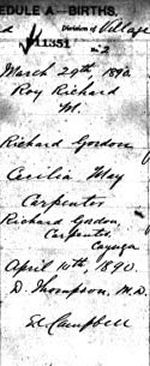 EDULE A.—BIRTHS.
Division of Village
11351
No 2
March 29th, 1890
Roy Richard
M.
Richard Gordon
Cecilia May
Carpenter
Richard Gordon,
Carpenter,
Cayuga
April 10th, 1890.
D. Thompson, M.D.
Campbell